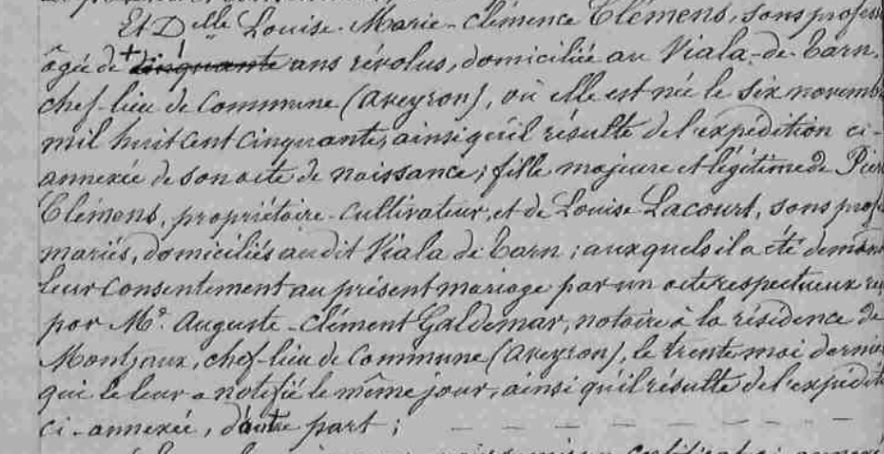 Et Delle Louise-Marie-Clémence Clémens, sans profess
âgée de + cinquante ans révolus, domiciliée au Viala-de-Tarn,
chef-lieu de Commune (Aveyron), où elle est née le six novemb
mil huit cent cinquante, ainsi qu'il résulte de l'expédition ci-
annexée de son acte de naissance; fille majeure et légitime de Pier
Clémens, propriétaire-cultivateur, et de Louise Lacourt, sans prof
mariés, domiciliés audit Viala de Tarn; auxquels il a été deman
leur consentement au présent mariage par un acte respectueux re
par Me. Auguste-Clément Galdemar, notaire à la résidence de
Montjaux, chef-lieu de Commune (Aveyron), le trente mai dernie
qui le leur a notifié le même jour, ainsi qu'il résulte de l'expédit
ci-annexée, d'autre part;